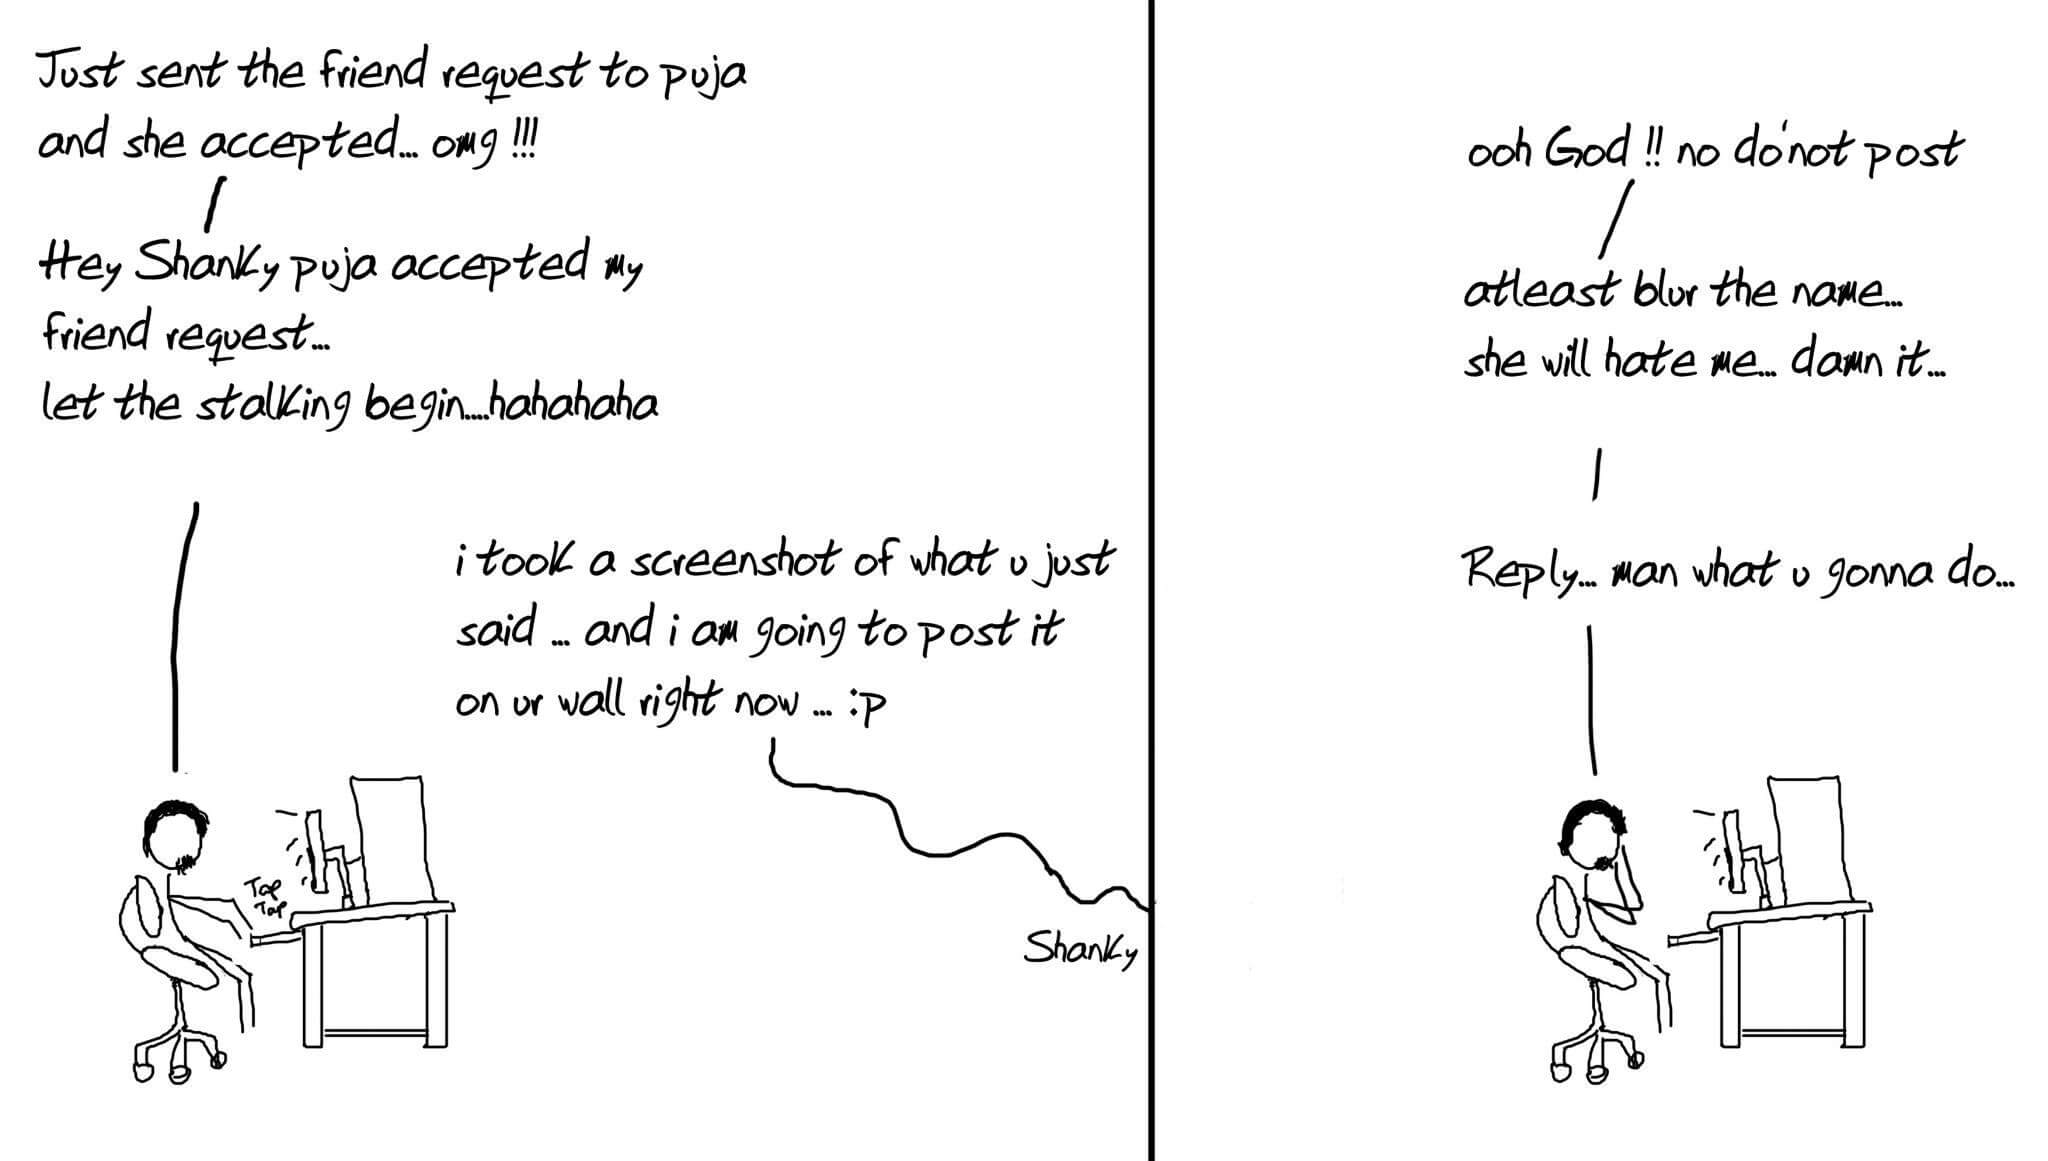 Just sent the friend request to puja
and she accepted... omg !!!
Hey Shanky puja accepted my
friend request...
let the stalking begin....hahahaha
i took a screenshot of what u just
said ... and i am going to post it
on ur wall right now ... :p
Tap
Tap
Shanky
ooh God !! no do'not post
atleast blur the name...
she will hate me... damn it...
Reply... man what u gonna do...